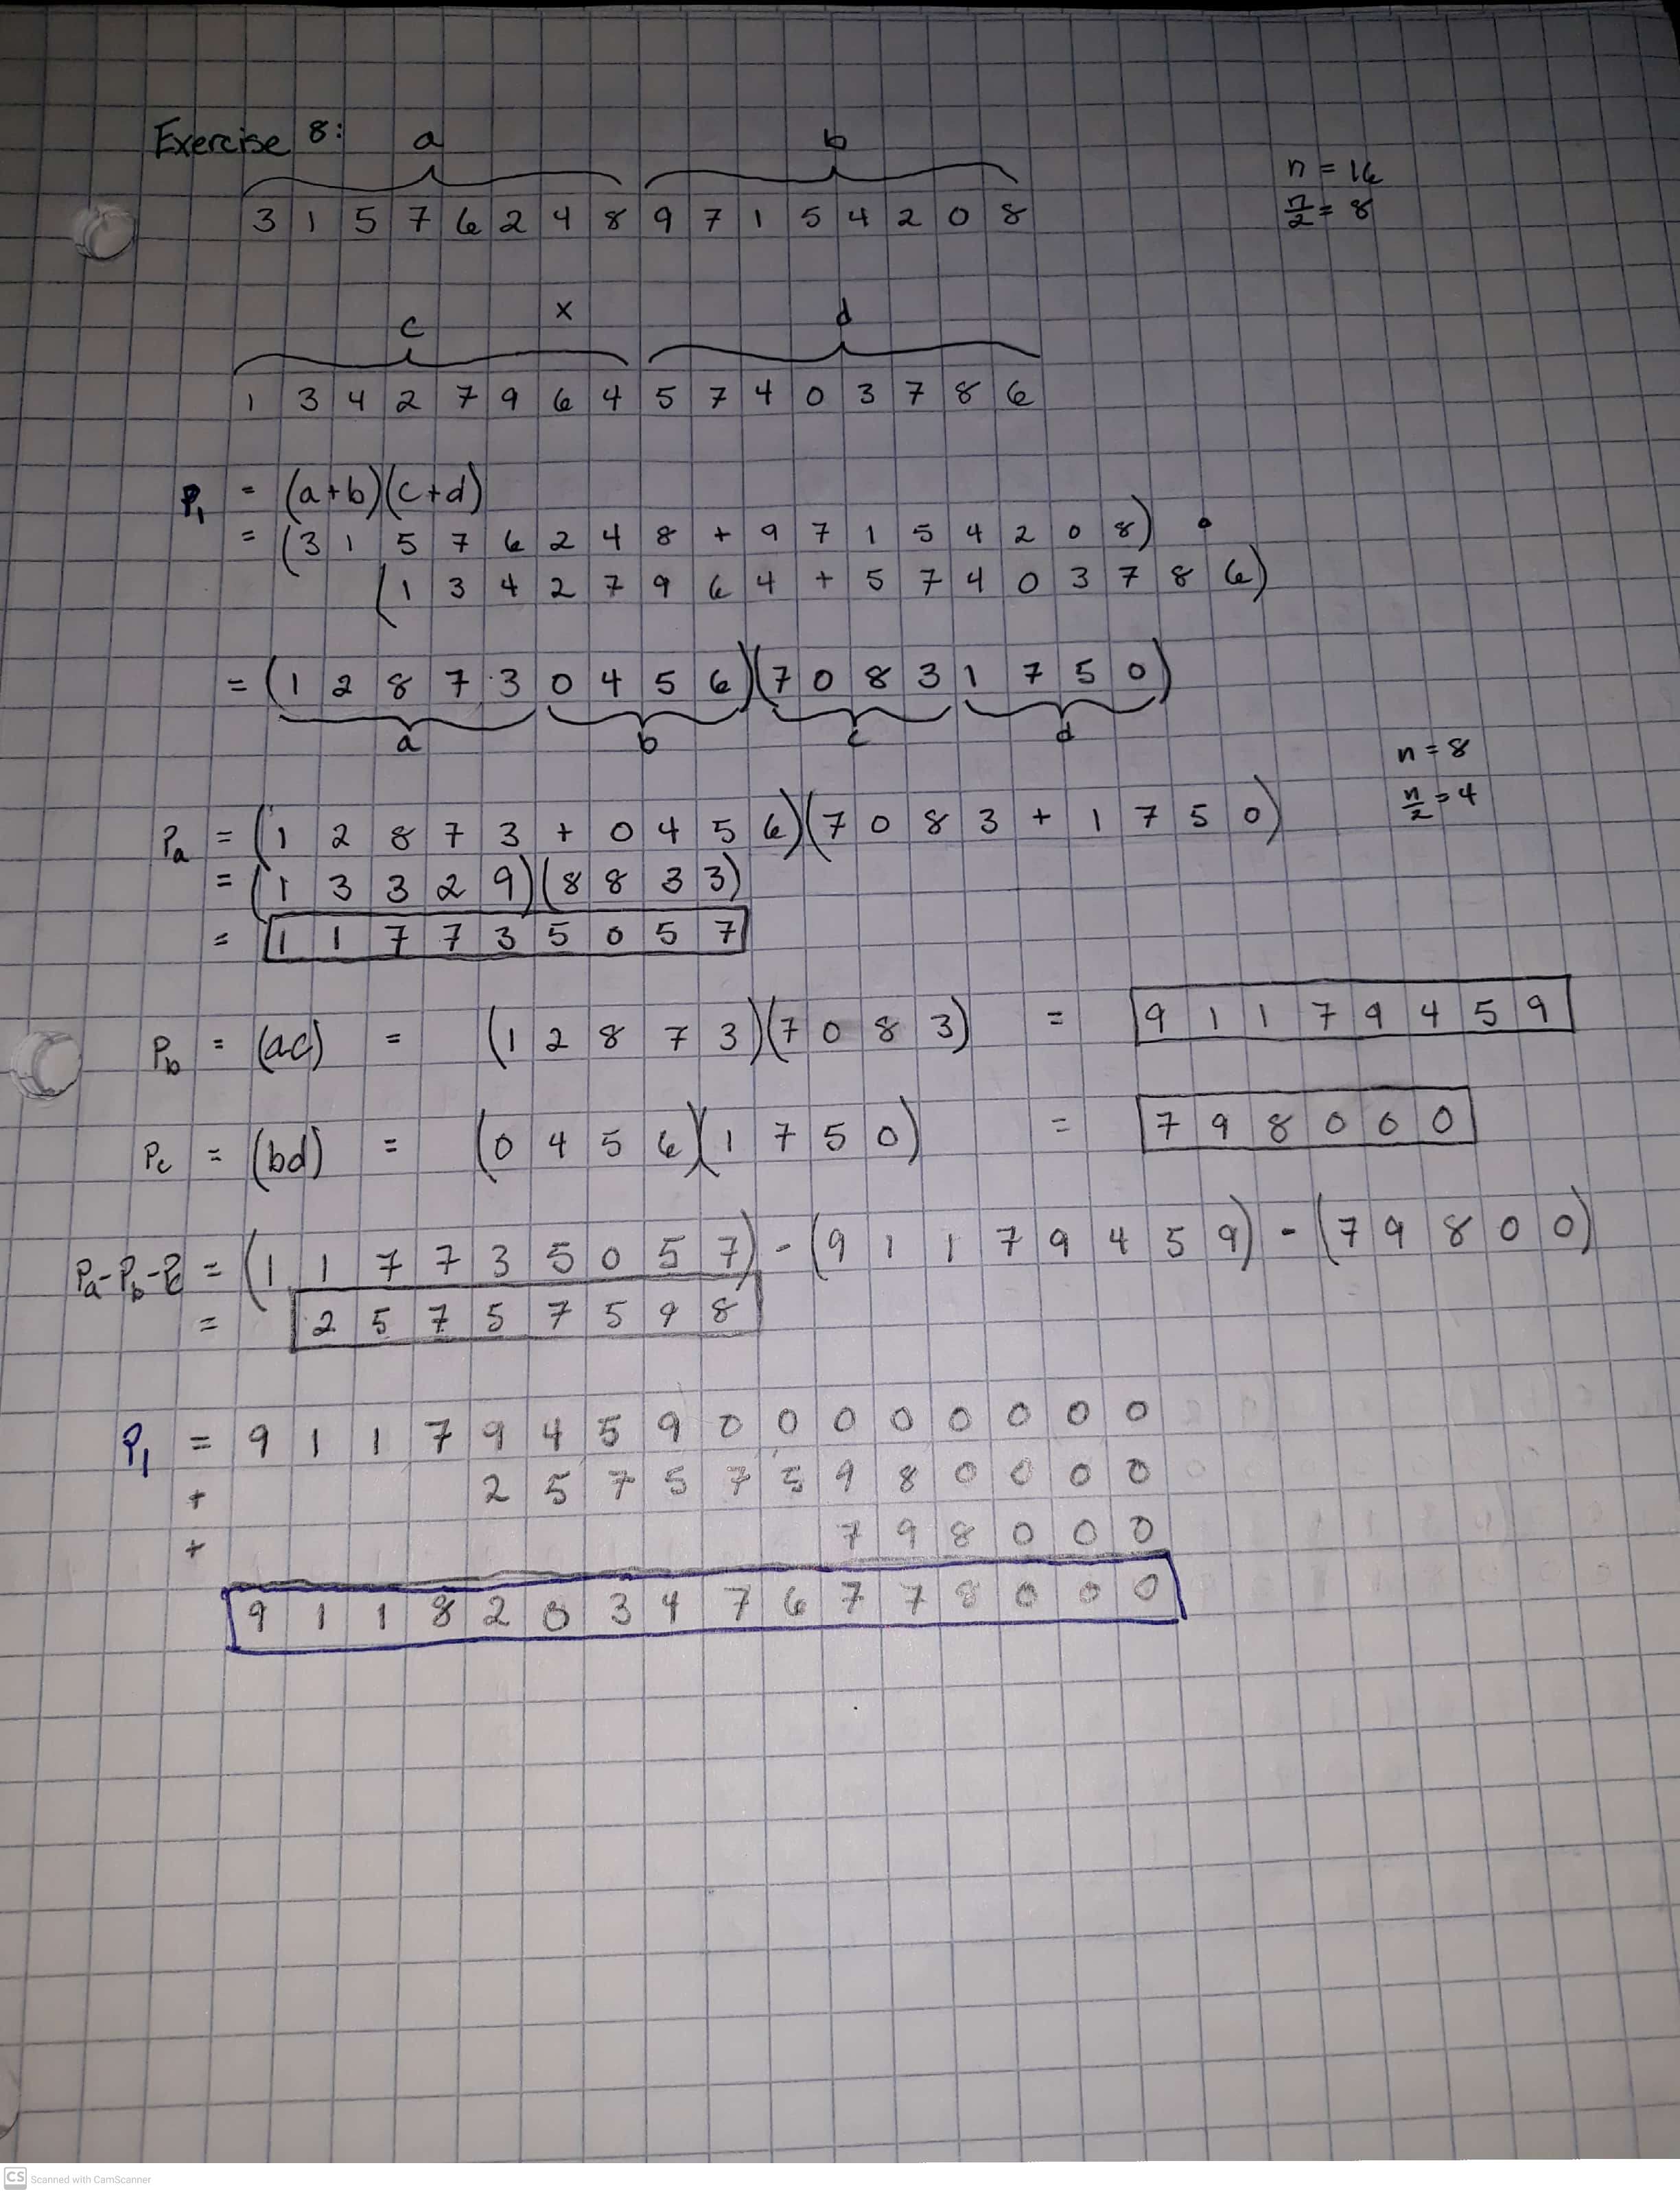 Exercise 8:
a b
3 1 5 7 6 2 4 8 9 7 1 5 4 2 0 8
n = 16
n/2 = 8
x
c d
1 3 4 2 7 9 6 4 5 7 4 0 3 7 8 6
P₁ = (a+b)(c+d)
= (3 1 5 7 6 2 4 8 + 9 7 1 5 4 2 0 8) •
(1 3 4 2 7 9 6 4 + 5 7 4 0 3 7 8 6)
= (1 2 8 7 3 0 4 5 6)(7 0 8 3 1 7 5 0)
a b c d
n = 8
n/2 = 4
Pa = (1 2 8 7 3 + 0 4 5 6)(7 0 8 3 + 1 7 5 0)
= (1 3 3 2 9)(8 8 3 3)
= 1 1 7 7 3 5 0 5 7
Pb = (ac) = (1 2 8 7 3)(7 0 8 3) = 9 1 1 7 9 4 5 9
Pc = (bd) = (0 4 5 6)(1 7 5 0) = 7 9 8 0 0 0
Pa-Pb-Pc = (1 1 7 7 3 5 0 5 7) - (9 1 1 7 9 4 5 9) - (7 9 8 0 0)
= 2 5 7 5 7 5 9 8
P₁ = 9 1 1 7 9 4 5 9 0 0 0 0 0 0 0 0
+ 2 5 7 5 7 5 9 8 0 0 0 0
+ 7 9 8 0 0 0
9 1 1 8 2 0 3 4 7 6 7 7 8 0 0 0
CS Scanned with CamScanner